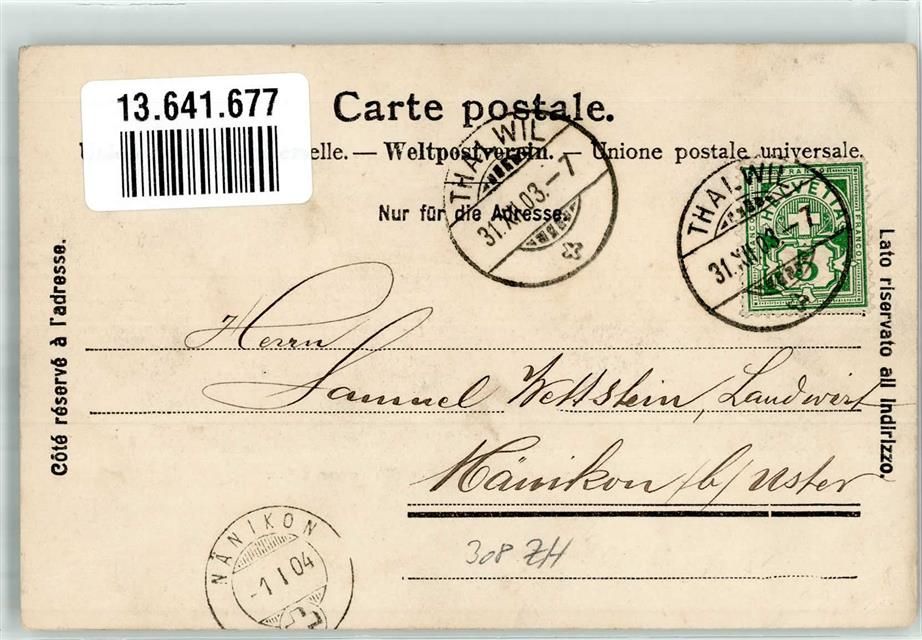 13.641.677
Carte postale.
elle. — Weltpostverein. — Unione postale universale.
Nur für die Adresse.
THALWIL
31.XII.03.-7
THALWIL
31.XII.03.-7
FRANCO
HELVETIA
FRANCO
5
Côté réservé à l'adresse.
Lato riservato all indirizzo.
Herrn
Samuel Wettstein, Landwirt
Nänikon /b/ Uster
308 ZH
NÄNIKON
-1 I 04